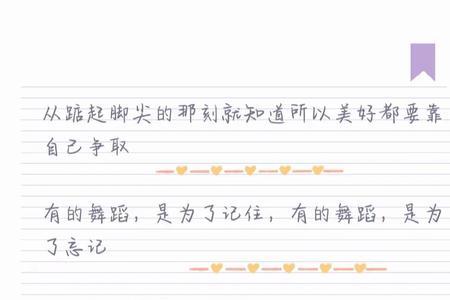 从踮起脚尖的那刻就知道所以美好都要靠
自己争取
有的舞蹈，是为了记住，有的舞蹈，是为
了忘记